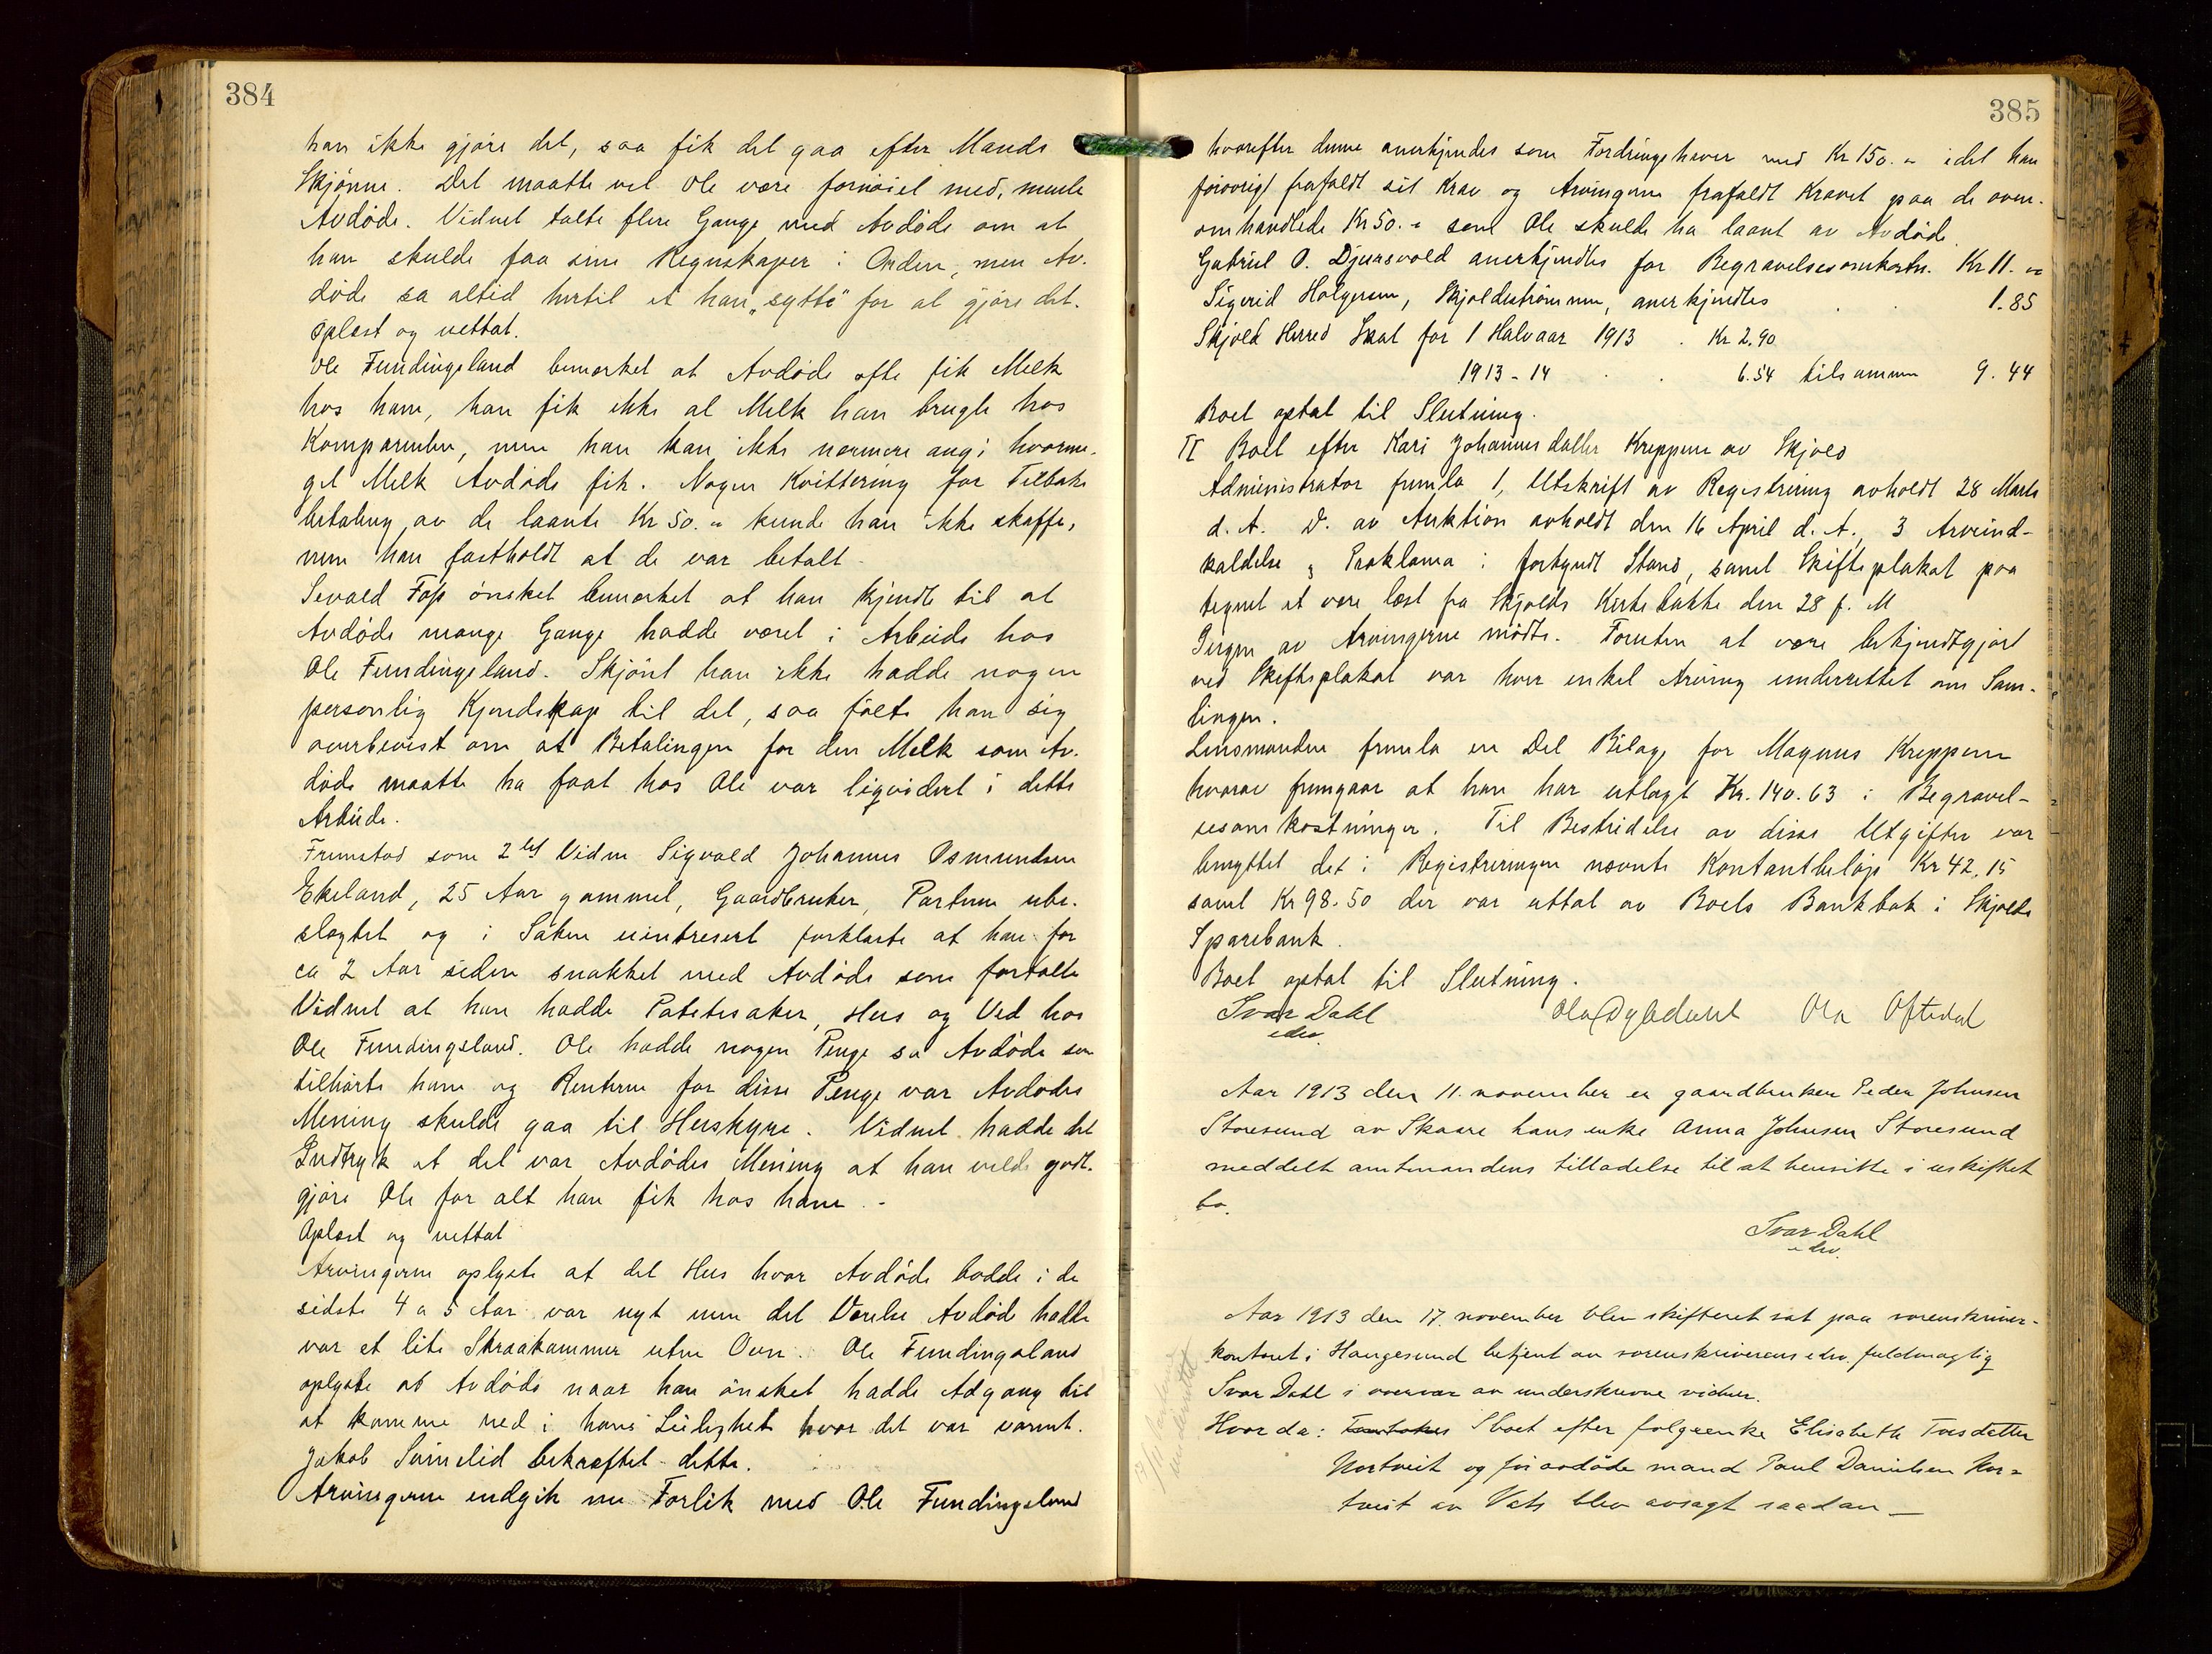 384
han ikke gjøre det, saa fik det gaa efter Mænds
Skjønne. Det maatte vel Ole være fornøiet med, mente
Avdøde. Vidnet talte flere Gange med Avdøde om at
han skulde faa sine Regnskaper i Orden, men Av-
døde sa altid hertil at han "sytte" for at gjøre det.
Oplæst og vettat.
Ole Fundingsland bemerket at Avdøde ofte fik Melk
hos ham, han fik ikke al Melk han brugte hos
Komparenten, men han kan ikke nærmere angi hvorme-
get Melk Avdøde fik. Nogen Kvittering for Tilbake
betaling av de laante Kr 50.- kunde han ikke skaffe,
men han fastholdt at de var betalt.
Sevald ønsket bemerket at han kjendte til at
Avdøde mange Gange hadde været i Arbeide hos
Ole Fundingsland. Skjønt han ikke hadde nogen
personlig Kjendskap til det, saa følte han sig
overbevist om at Betalingen for den Melk som Av-
døde maatte ha faat hos Ole var ligvidert i dette
Arbeide.
Fremstod som 2det Vidne Sigvald Johannes Osmundsen
Ekeland, 25 Aar gammel, Gaardbruker, Parterne ube-
slægtet og i Saken uintresert forklarte at han for
ca 2 Aar siden snakket med Avdøde som fortalte
Vidnet at han hadde Potetesaker, Hus og Ved hos
Ole Fundingsland. Ole hadde nogen Penge sa Avdøde som
tilhørte ham og Renterne for disse Penge var Avdødes
Mening skulde gaa til Huskyre. Vidnet hadde det
Indtryk at det var Avdødes Mening at han vilde godt-
gjøre Ole for alt han fik hos ham. -
Oplæst og vettat
Arvingerne oplyste at det Hus hvor Avdøde bodde i de
sidste 4 a 5 Aar var nyt men det Værelse Avdød hadde
var et lite Skraakammer uten Ovn. Ole Fundingsland
oplyste at Avdøde naar han ønsket hadde Adgang til
at komme ned i hans Leilighet hvor det var varmt.
Jakob Svinelid bekræftet dette.
Arvingerne indgik nu Forlik med Ole Fundingsland
385
hvorefter denne anerkjendes som Fordringshaver med Kr 150.- idet han
forøvrigt frafaldt sit Krav og Arvingerne frafaldt Kravet paa de oven-
omhandlede Kr 50.- som Ole skulde ha laant av Avdøde.
Gabriel O. Djuasvold anerkjendtes for Begravelsesomkostn. Kr 11.-
Sigerid Holgersen, Skjoldestrømmen, anerkjendtes . . 1.85
Skjold Herred Skat for 1 Halvaar 1913 . Kr 2.90
1913-14 . . 6.54 tilsammen 9.44
Boet optat til Slutning.
II Boet efter Kari Johannesdatter Kreppene av Skjold
Administrator fremla 1, Utskrift av Registrering avholdt 28 Marts
d. A. D. av Auktion avholdt den 16 April d. A., 3 Arveind-
kaldelse & Proklama i forkyndt Stand, samt Skifteplakat paa
tegnet at være læst fra Skjolds Kirkebakke den 28 f. M
Ingen av Arvingerne mødte. Foruten at være bekjendtgjort
ved Skifteplakat var hver enkel Arving underrettet om Sam-
lingen.
Lensmanden fremla en Del Bilag for Magnus Kreppene
hvorav fremgaar at han har utlagt Kr. 140.63 i Begravel-
sesomkostninger. Til Bestridelse av disse Utgifter var
benyttet det i Registreringen nævnte Kontantbeløp Kr 42,15
samt Kr 98.50 der var uttat av Boets Bankbok i Skjolds
Sparebank.
Boet optat til Slutning.
Ivar Dahl Ola Ola Oftedal
edsv.
Aar 1913 den 11. november er gaardbruker Peder Johnsen
Storesund av Skaare hans enke Anna Johnsen Storesund
meddelt amtmandens tilladelse til at hensitte i uskiftet
bo.
Ivar Dahl
edsv.
Aar 1913 den 17. november blev skifteret sat paa sorenskriver-
kontoret i Haugesund betjent av sorenskriverens edsv. fuldmægtig
Ivar Dahl i overvær av underskrevne vidner.
Hvor da: I boet efter følgeenke Elisabeth Torsdatter
Nortveit og før avdøde mand Paul Danielsen Nor-
tveit av Vats blev avsagt saadan —